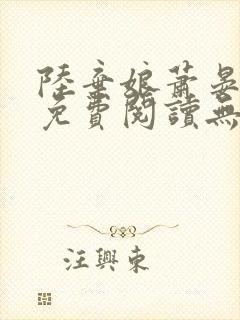 陸棄娘蕭晏
免費閱讀無
汪興東